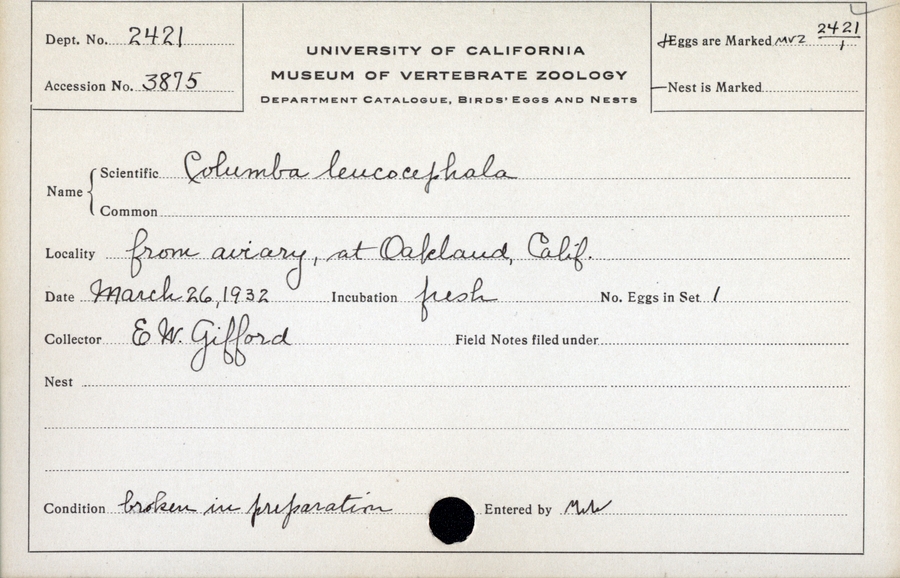 Dept. No. 2421
Accession No. 3875
UNIVERSITY OF CALIFORNIA
MUSEUM OF VERTEBRATE ZOOLOGY
DEPARTMENT CATALOGUE, BIRDS' EGGS AND NESTS
Eggs are Marked MVZ 2421/1
Nest is Marked
Name
Scientific Columba leucocephala
Common
Locality from aviary, at Oakland, Calif.
Date March 26, 1932 Incubation fresh No. Eggs in Set 1
Collector E W. Gifford Field Notes filed under
Nest
Condition broken in preparation Entered by